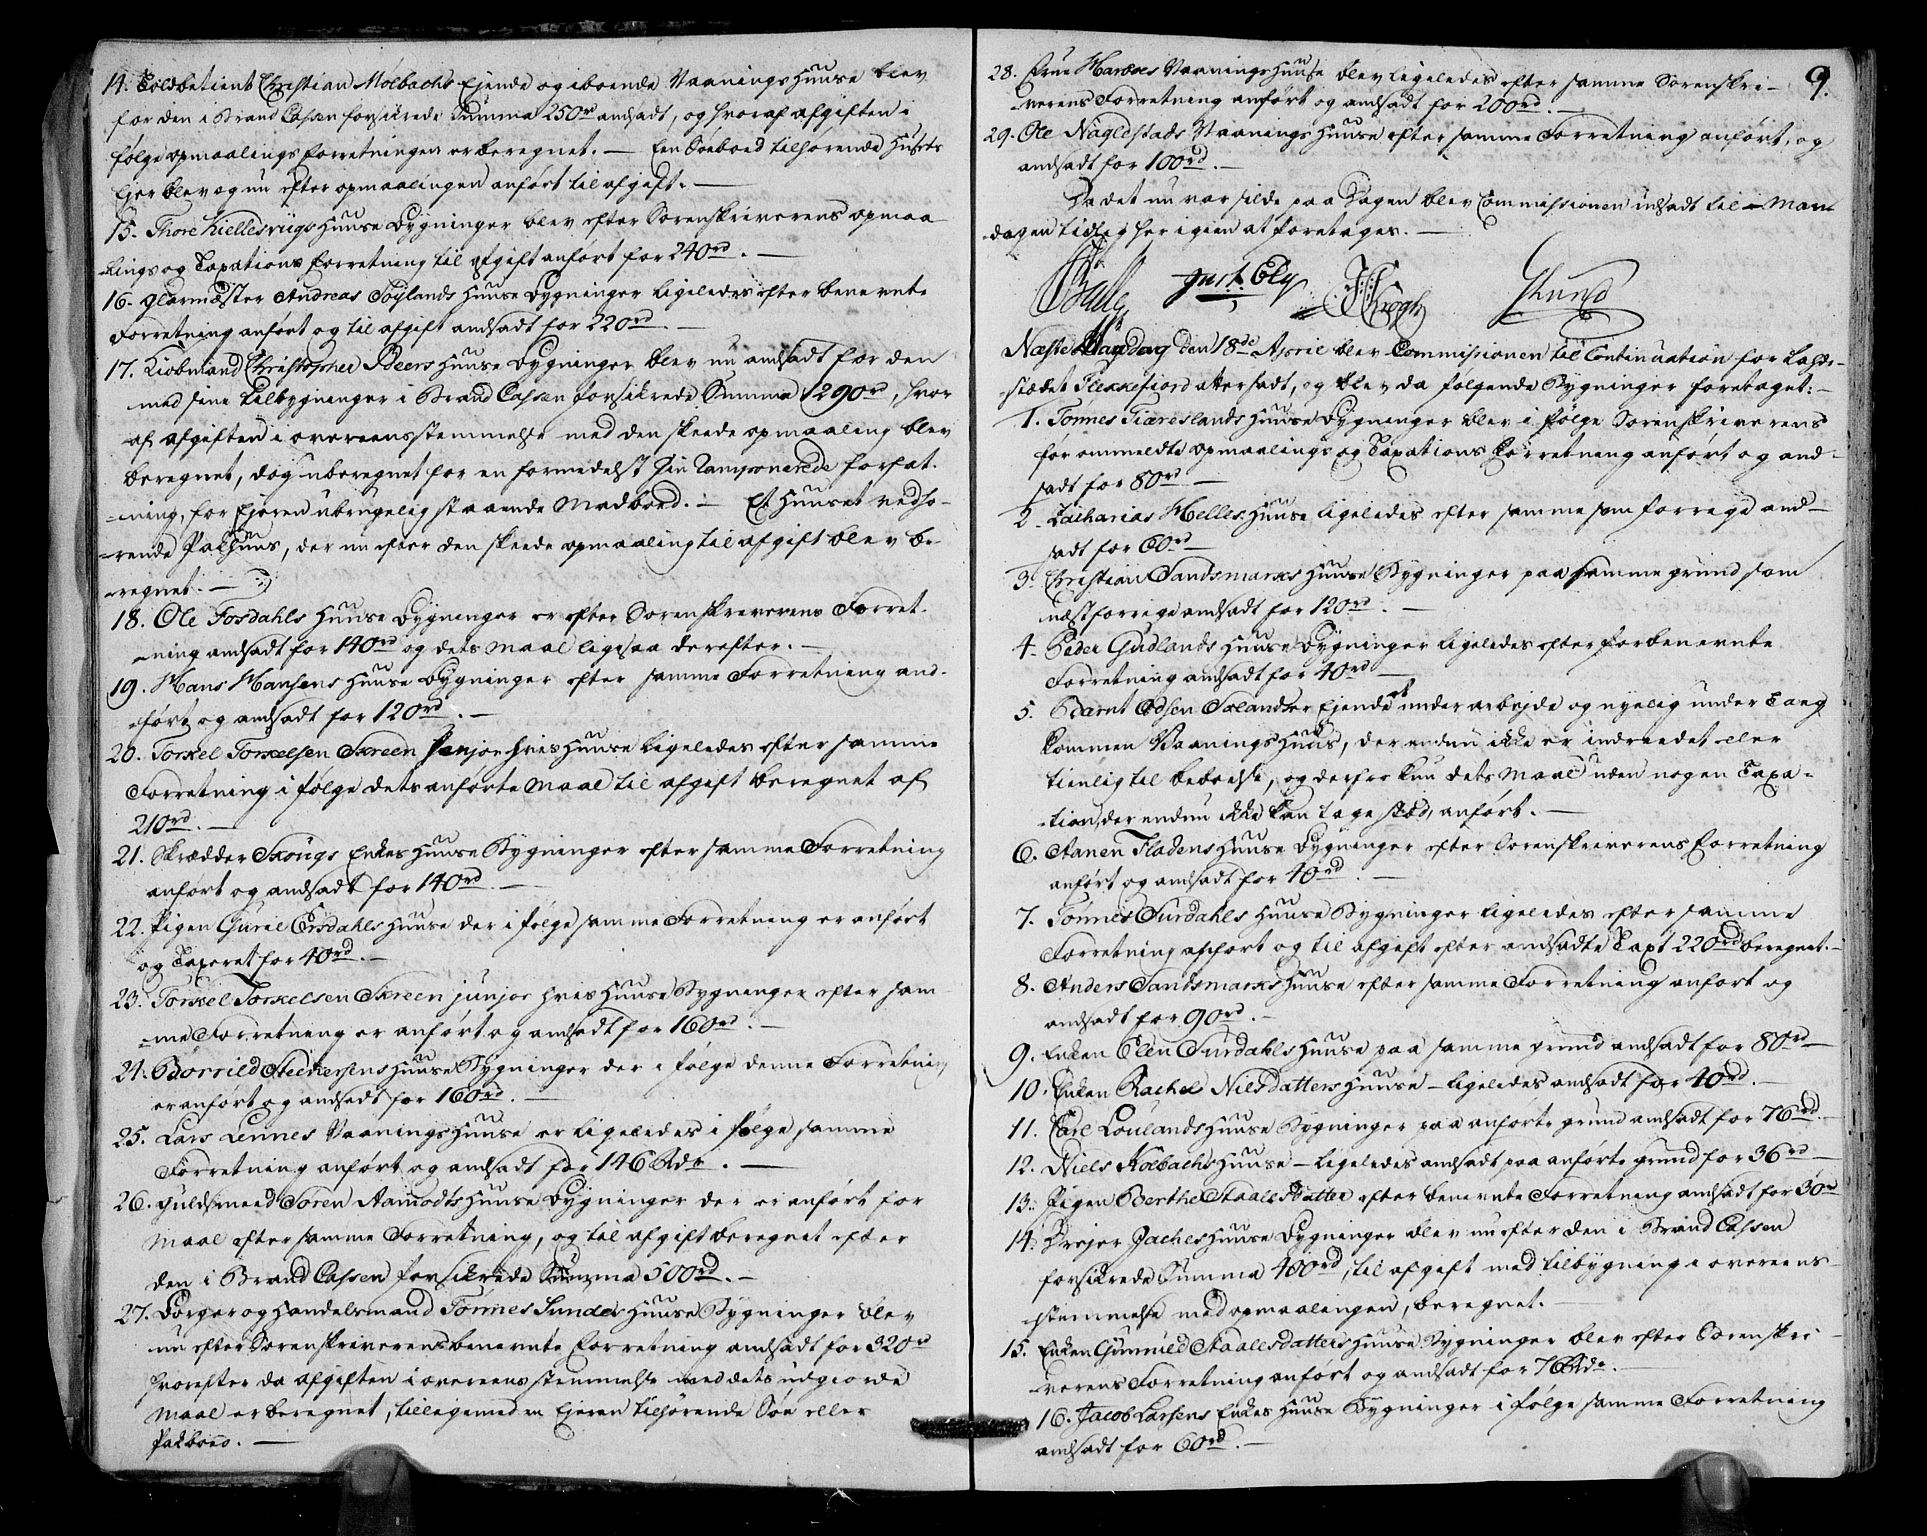 14. Toldbetient Christian Mölbachs Ejende og iboende Vaanings Huuse blev
for den i Brand Cassen forsikrede Summa 250rd andsadt, og hvoraf afgiften i
fölge opmaalings forretningen er beregnet. — Een Söeboed tilhörende Husets
Ejer blev og nu efter opmaalingen anfört til afgift. —
15. Thore Kiellesviigs Huuse Bygninger blev efter Sorenskriverens opmaa-
lings og Taxations Forretning til afgift anfört for 240rd. —
16. Glarmæster Andreas Töylands Huuse Bygninger ligeledes efter benevnte
Forretning anfört og til afgift andsadt for 220rd. —
17. Kiöbmand Christopher Beers Huuse Bygninger blev nu andsadt for den
med sine Tilbygninger i Brand Cassen forsikrede Summa 1290rd, hvor
af afgiften i overeensstemmelse med den skeede opmaaling blev
beregnet, dog uberegnet for en formedelst sin Ramponerede forfat-
ning, for Ejeren ubrugelig staaende Madboed. — Et Huuset vedhö-
rende Pakhuus, der nu efter den skeede opmaaling til afgift blev be-
regnet. —
18. Ole Fosdahls Huuse Bygninger er efter Sorenskriverens Forret-
ning andsadt for 140rd og dets Maal ligesaa derefter. —
19. Hans Hansens Huuse Bygninger efter samme Forretning and-
fört og andsadt for 120rd. —
20. Torkel Torkelsen Skreen senjor hvis Huuse ligeledes efter samme
Forretning i fölge dets anförte Maal til afgift beregnet af
210rd. —
21. Skrædder Skougs Enkes Huuse Bygninger efter samme Forretning
anfört og andsadt for 140rd. —
22. Pigen Guriel Ersdahls Huuse der i fölge samme Forretning er anfört
og Taxeret for 40rd. —
23. Torkel Torkelsen Skreen junjor hvis Huuse Bygninger efter sam-
me Forretning er anfört og andsadt for 160rd. —
24. Börrild Stechersens Huuse Bygninger der i fölge denne Forretning
er anfört og andsadt for 160rd. —
25. Lars Lennes Vaanings Huuse er ligeledes i fölge samme
Forretning anfört og andsadt for 146 Rdr. —
26. Guldsmed Sören Aamodts Huuse Bygninger der er anfört for
Maal efter samme Forretning, og til afgift beregnet efter
den i Brand Cassen forsikrede Summa 500rd. —
27. Borger og Handelsmand Tönnes Sundes Huuse Bygninger blev
nu efter Sorenskriverens benevnte Forretning andsadt for 320rd
hvorefter da afgiften i overeensstemmelse med dets udgiorde
Maal er beregnet, tillegemed en Ejeren tilhörende Söe eller
Pakboed. —
9.
28. Enke Haraees Vaanings Huuse blev ligeledes efter samme Sorenskri-
verens Forretning anfört og andsadt for 200rd. —
29. Ole Naglestads Vaanings Huuse efter samme Forretning anfört, og
andsadt for 100rd. —
Da det nu var silde paa Dagen blev Commissionen udsadt til Man-
dagen tidlig her igien at foretages. —
Just Ely Krogh Lund
Næste Mandag den 18de April blev Commissionen til Continuation for Ladde-
stædet Flekkefiord atter sadt, og blev da fölgende Bygninger foretaget: —
1. Tönnes Tiæreslands Huuse Bygninger blev i fölge Sorenskriverens
för ommeldte opmaalings og Taxations Forretning anfört og and-
sadt for 80rd. —
2. Zacharias Helles Huuse ligeledes efter samme som forrige and-
sadt for 60rd —
3. Christian Sandsmarks Huuse Bygninger paa samme grund som
næstforrige andsadt for 120rd. —
4. Peder Gudlands Huuse Bygninger ligeledes efter forbenevnte
Forretning andsadt for 40rd —
5. Barnt Edsen Svlander Ejende et under arbejde og nyelig under Tag
kommen Vaanings Huus, der endnu ikke er indreedet eller
tienlig til beboelse, og derfor kun dets Maal uden nogen Taxa-
tion, der endnu ikke kan tage stæd, anfört. —
6. Aanen Fladens Huuse Bygninger efter Sorenskriverens Forretning
anfört og andsadt for 40rd. —
7. Tönnes Surdahls Huuse Bygninger ligeledes efter samme
Forretning anfört og til afgift efter andsadte Taxt 220rd beregnet. —
8. Anders Sandsmarks Huuse efter samme Forretning anfört og
andsadt for 90rd. —
9. Enken Elen Surdahls Huuse paa samme grund andsadt for 80rd —
10. Enken Rachel Nilsdatters Huuse — ligeledes andsadt for 40rd. —
11. Carl Loulands Huuse Bygninger paa anförte grund andsadt for 76rd. —
12. Niels Holbachs Huuse — ligeledes andsadt paa anförte grund for 36rd —
13. Pigen Berthe Staalesdatter efter benevnte Forretning andsadt for 30rd
14. Drejer Jachels Huuse Bygninger blev nu efter den i Brand Cassen
forsikrede Summa 400rd, til afgift med tilbygning i overeens-
stemmelse med opmaalingen, beregnet. —
15. Enken Gunnild Staalesdatters Huuse Bygninger blev efter Sorenskri-
verens Forretning anfört og andsadt for 76 Rdr. —
16. Jacob Larsens Enkes Huuse Bygninger i fölge samme Forretning
andsadt for 60rd. —